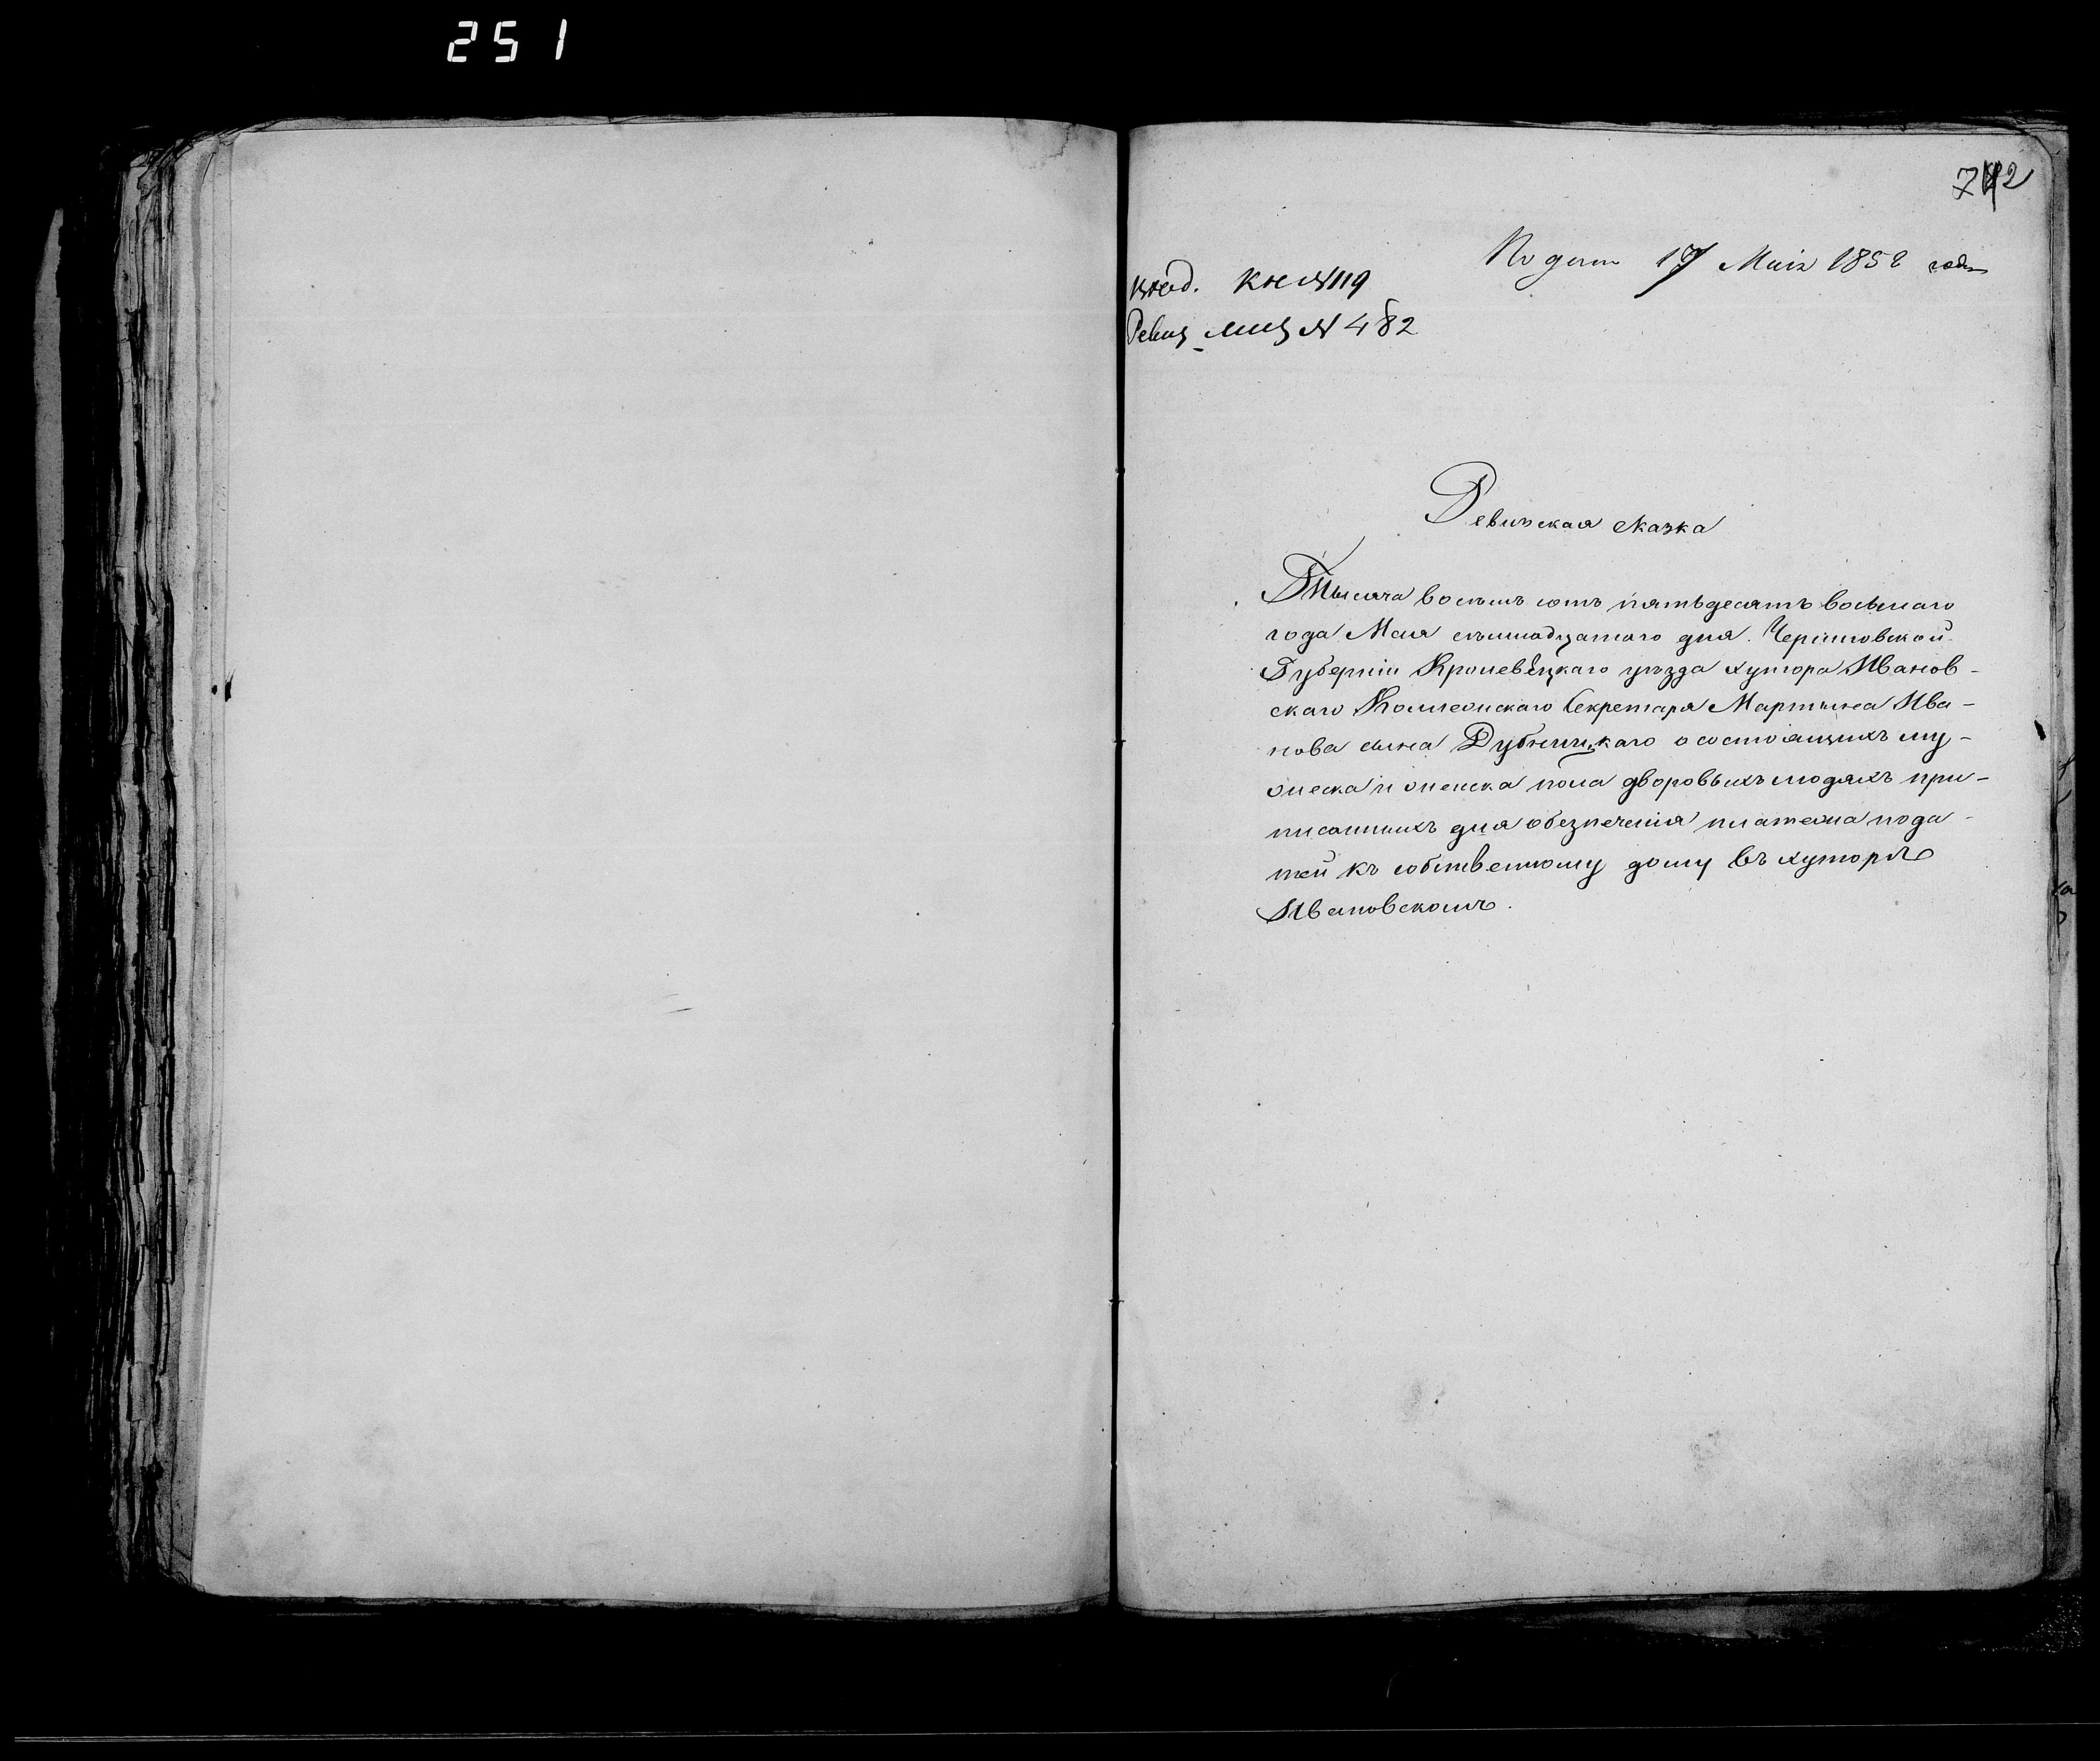 251
742
Подана 17 Маія 1858 года
вход. Кн №119
Ревиз №482
Ревизская сказка
Тысяча восемь сотъ пятьдесятъ восьмаго
года Мая семнадцатаго дня. Черниговской
Губерніи Кролевѣцкаго уѣзда хутора Иванов-
скаго Коллежскаго Секретаря Мартына Ива-
нова сына Дубницкаго о состоящихъ му-
жеска и женска пола дворовыхъ людяхъ при-
писанныхъ для обезпеченія платежа пода-
тей къ собственному дому въ хуторѣ
Ивановскомъ.